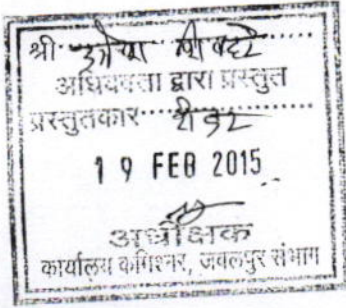 श्री
अधिवक्ता द्वारा प्रस्तुत
प्रस्तुतकार रीडर
19 FEB 2015
अधीक्षक
कार्यालय कमिश्नर, जबलपुर संभाग